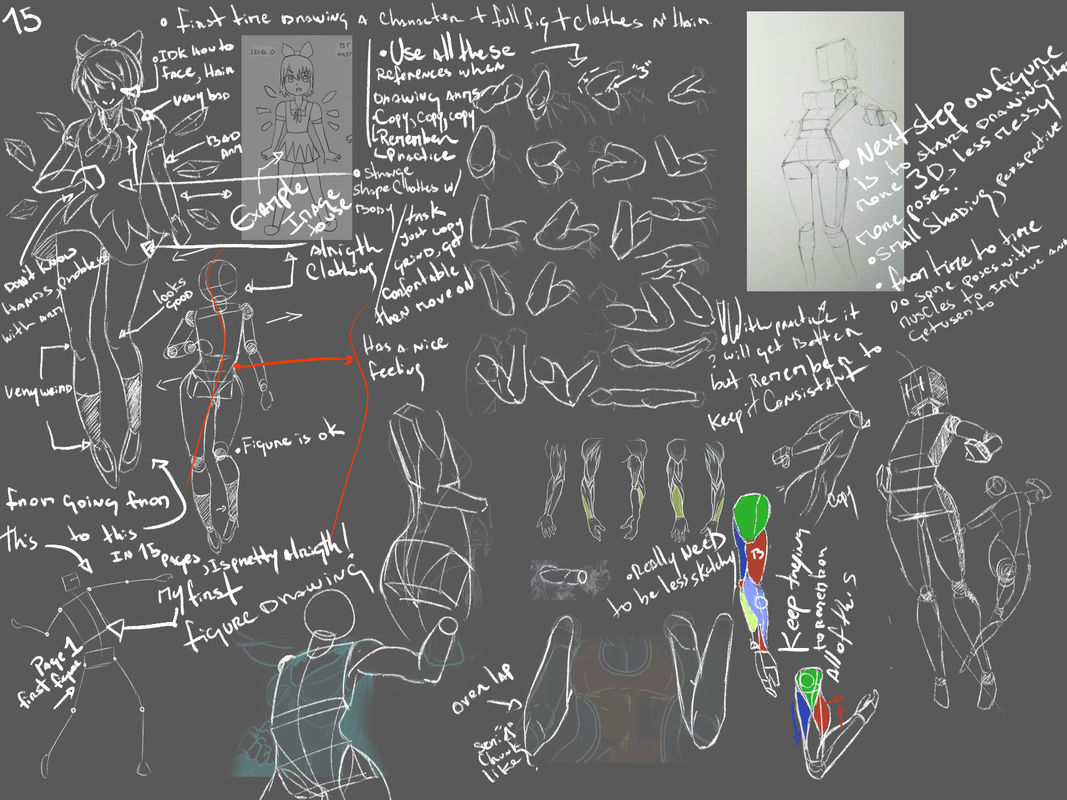 15
• First time Drawing A Character + full fig + clothes N' Hair.
• IDK How to
face, Hair
very bad
BAD
ARM
LEVEL 0
Example
Image
to use
• Use all these
References when
Drawing Arms
• Copy, copy, copy
Remember
Practice
• Strange
shape Clothes w/
Body
task
just copy
grind, get
Comfortable
then move on
"3"
Alrigth
Clothing
Don't know
Hands, problem
with arm
looks
good
Very weird
Has a nice
feeling
• Figure is ok
From going from
this to this
IN 15 pages, is pretty alrigth!
My first
figure Drawing
Page 1
first figure
• Next step on figure
is to start Drawing
more 3D, less messy
more poses.
• Small Shading, perspective
• from time to time
Do some poses with
muscles
!! With practice it
will get Better
but Remember to
keep it Consistent
• Really need
to be less sketchy
Keep trying
to remember
All of this
over lap